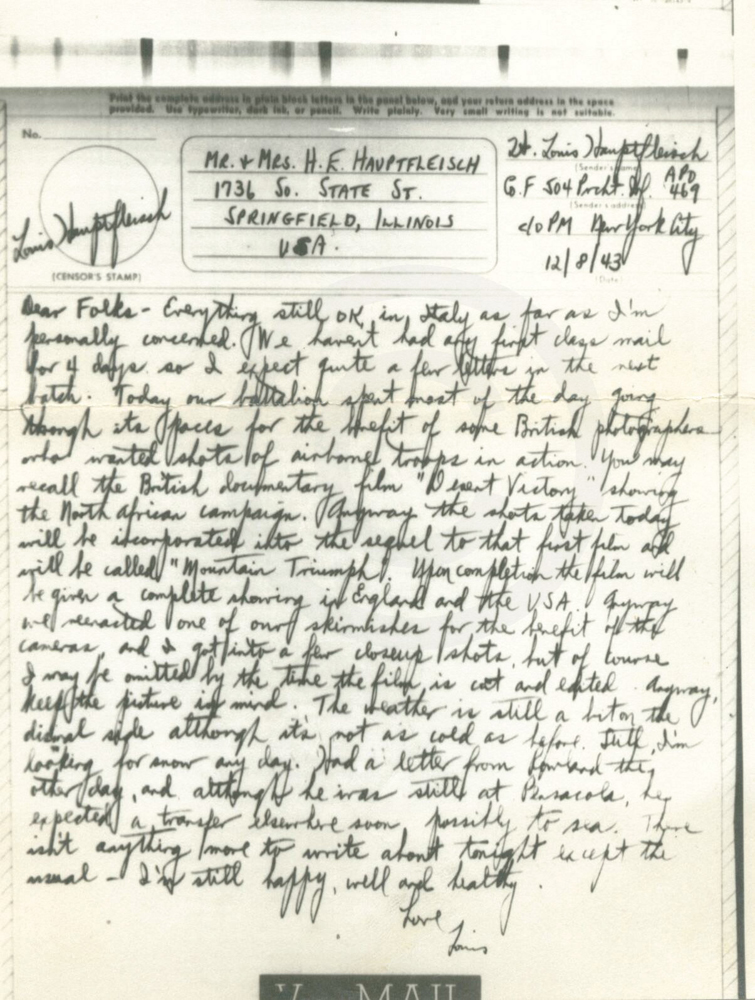 Print the complete address in plain block letters in the panel below, and your return address in the space
provided. Use typewriter, dark ink, or pencil. Write plainly. Very small writing is not suitable.
No.
MR. & MRS. H. E. HAUPTFLEISCH
1736 SO. STATE ST.
SPRINGFIELD, ILLINOIS
USA.
Lt. Louis Hauptfleisch
(Sender's name)
Co. F 504 Prcht. Inf. APO 469
(Sender's address)
c/o PM New York City
12/8/43
(Date)
Louis Hauptfleisch
(CENSOR'S STAMP)
Dear Folks - Everything still OK in Italy as far as I'm
personally concerned. We haven't had any first class mail
for 4 days so I expect quite a few letters in the next
batch. Today our battalion spent most of the day going
through its paces for the benefit of some British photographers
who wanted shots of airborne troops in action. You may
recall the British documentary film "Desert Victory" showing
the North African campaign. Anyway the shots taken today
will be incorporated into the sequel to that first film and
will be called "Mountain Triumph". Upon completion the film will
be given a complete showing in England and the USA. Anyway
we reenacted one of our skirmishes for the benefit of the
cameras, and I got into a few closeup shots, but of course
I may be omitted by the time the film is cut and edited. Anyway,
keep the picture in mind. The weather is still a bit on the
dismal side although it's not as cold as before. Still, I'm
looking for snow any day. Had a letter from Rowland the
other day, and although he was still at Pensacola, he
expected a transfer elsewhere soon, possibly to sea. There
isn't anything more to write about tonight except the
usual - I'm still happy, well and healthy.
Love
Louis
V - MAIL